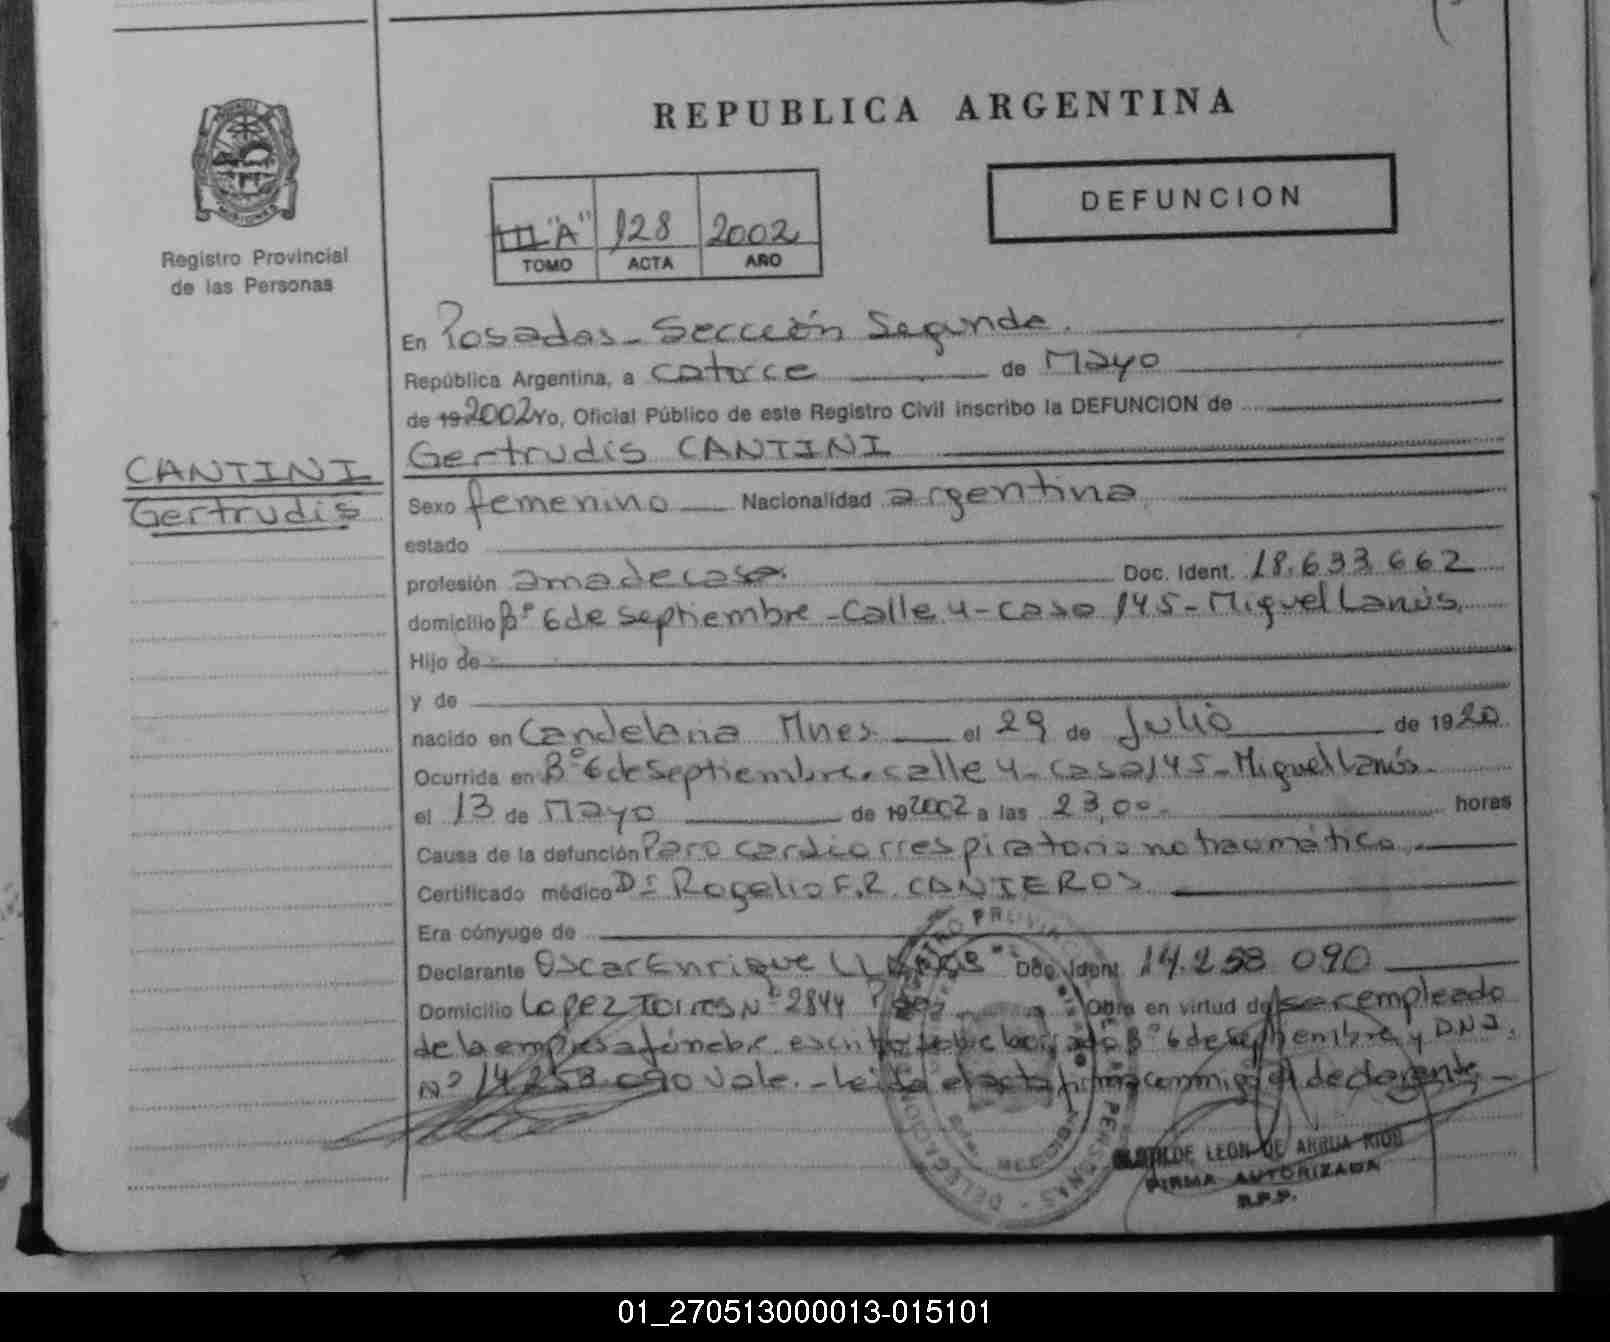 REPUBLICA ARGENTINA
DEFUNCION
MISIONES
Registro Provincial
de las Personas
III "A" 128 2002
TOMO ACTA AÑO
En Posadas - Sección Segunda.
República Argentina, a catorce de Mayo
de 19 2002 Yo, Oficial Público de este Registro Civil inscribo la DEFUNCION de
Gertrudis CANTINI
CANTINI
Gertrudis
Sexo femenino Nacionalidad argentina
estado
profesión ama de casa. Doc. Ident. 18.633.662
domicilio Bº 6 de septiembre - Calle 4 - casa 145 - Miguel Lanús.
Hijo de
y de
nacido en Candelaria Mnes. el 29 de Julio de 1920
Ocurrida en Bº 6 de septiembre. calle 4 - casa 145 - Miguel Lanús.
el 13 de Mayo de 19 2002 a las 23,00. horas
Causa de la defunción Paro cardiorrespiratorio no traumático.
Certificado médico Dr Rogelio F.R. CANTEROS
Era cónyuge de
Declarante Oscar Enrique Doc. Ident. 14.258.090
Domicilio Lopez Torres Nº 2844 Obra en virtud de ser empleado
de la empresa fúnebre. escrito sobre borrado Bº 6 de septiembre y DNI.
Nº 14.258.090 Vale. - Leída el acta firma conmigo el declarante, -
LEON DE ARRUA RIOS
FIRMA AUTORIZADA
R.P.P.
01_270513000013-015101